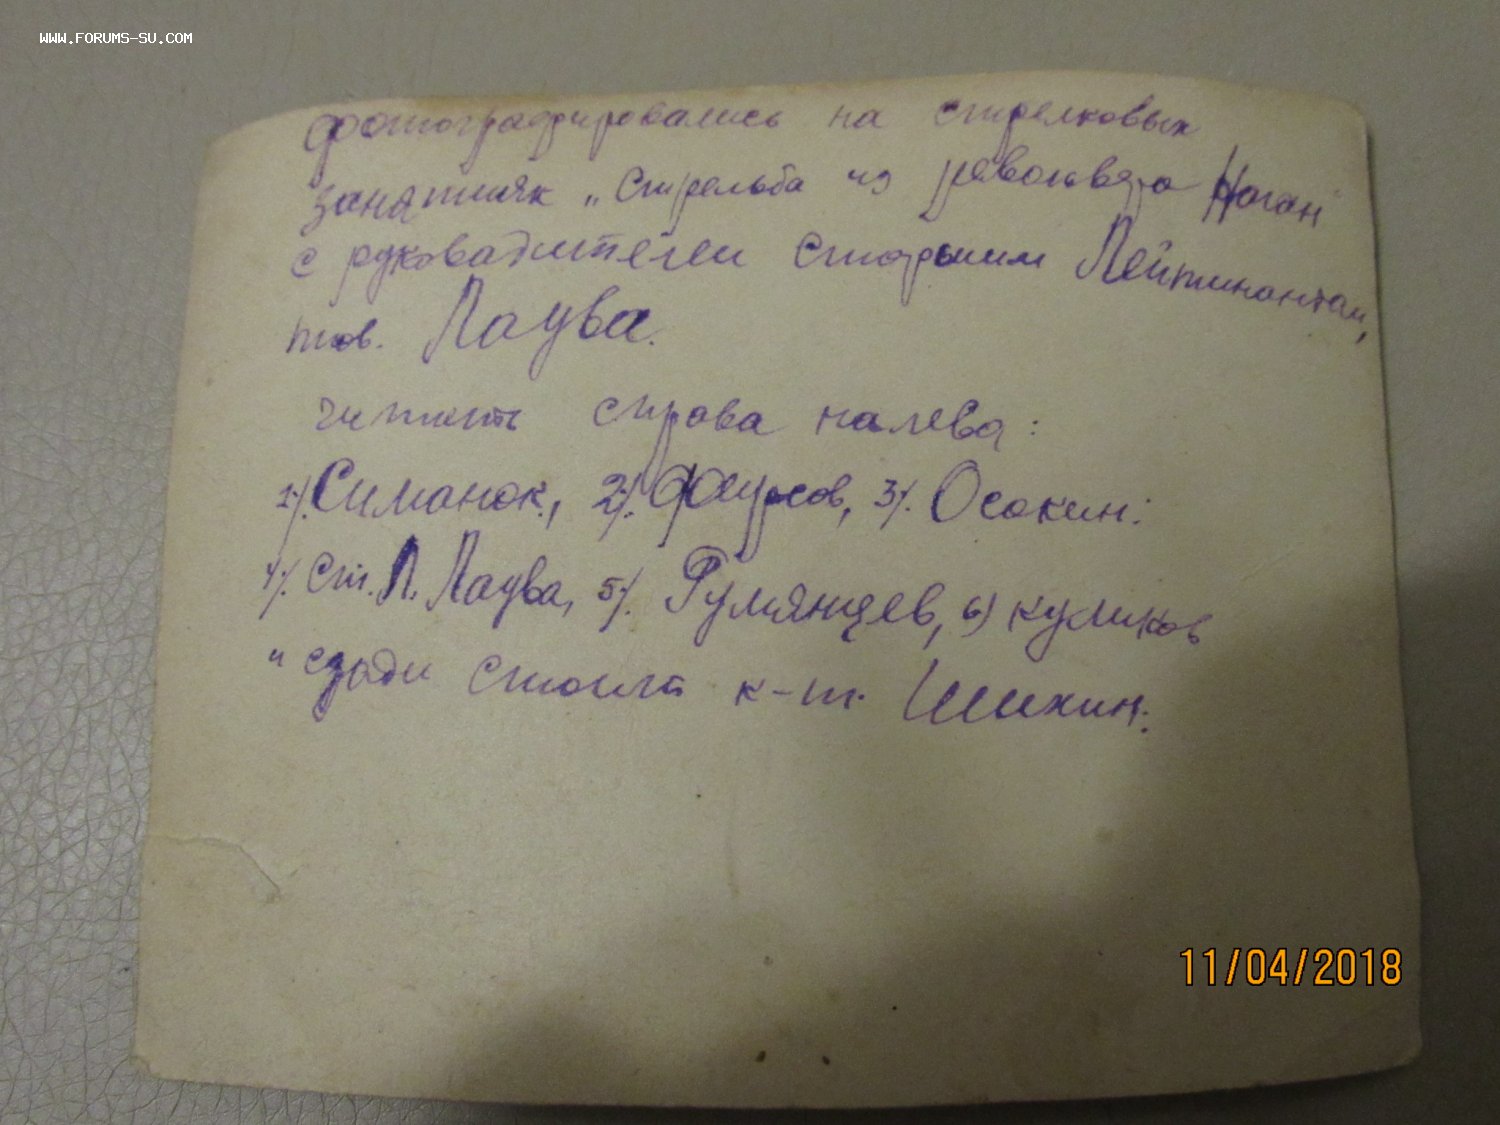 WWW.FORUMS-SU.COM
фотографировались на стрелковых
занятиях „Стрельба из револьвера Наган
с руковадителем старшим Лейтинантам,
тов. Лаува.
читать справа налева:
1/. Симанок, 2/. Фаурсов, 3/. Осокин:
4/. ст. Л. Лаува, 5/. Румянцев, 6) куликов
и сзади стоит к-т. Шихин.
11/04/2018